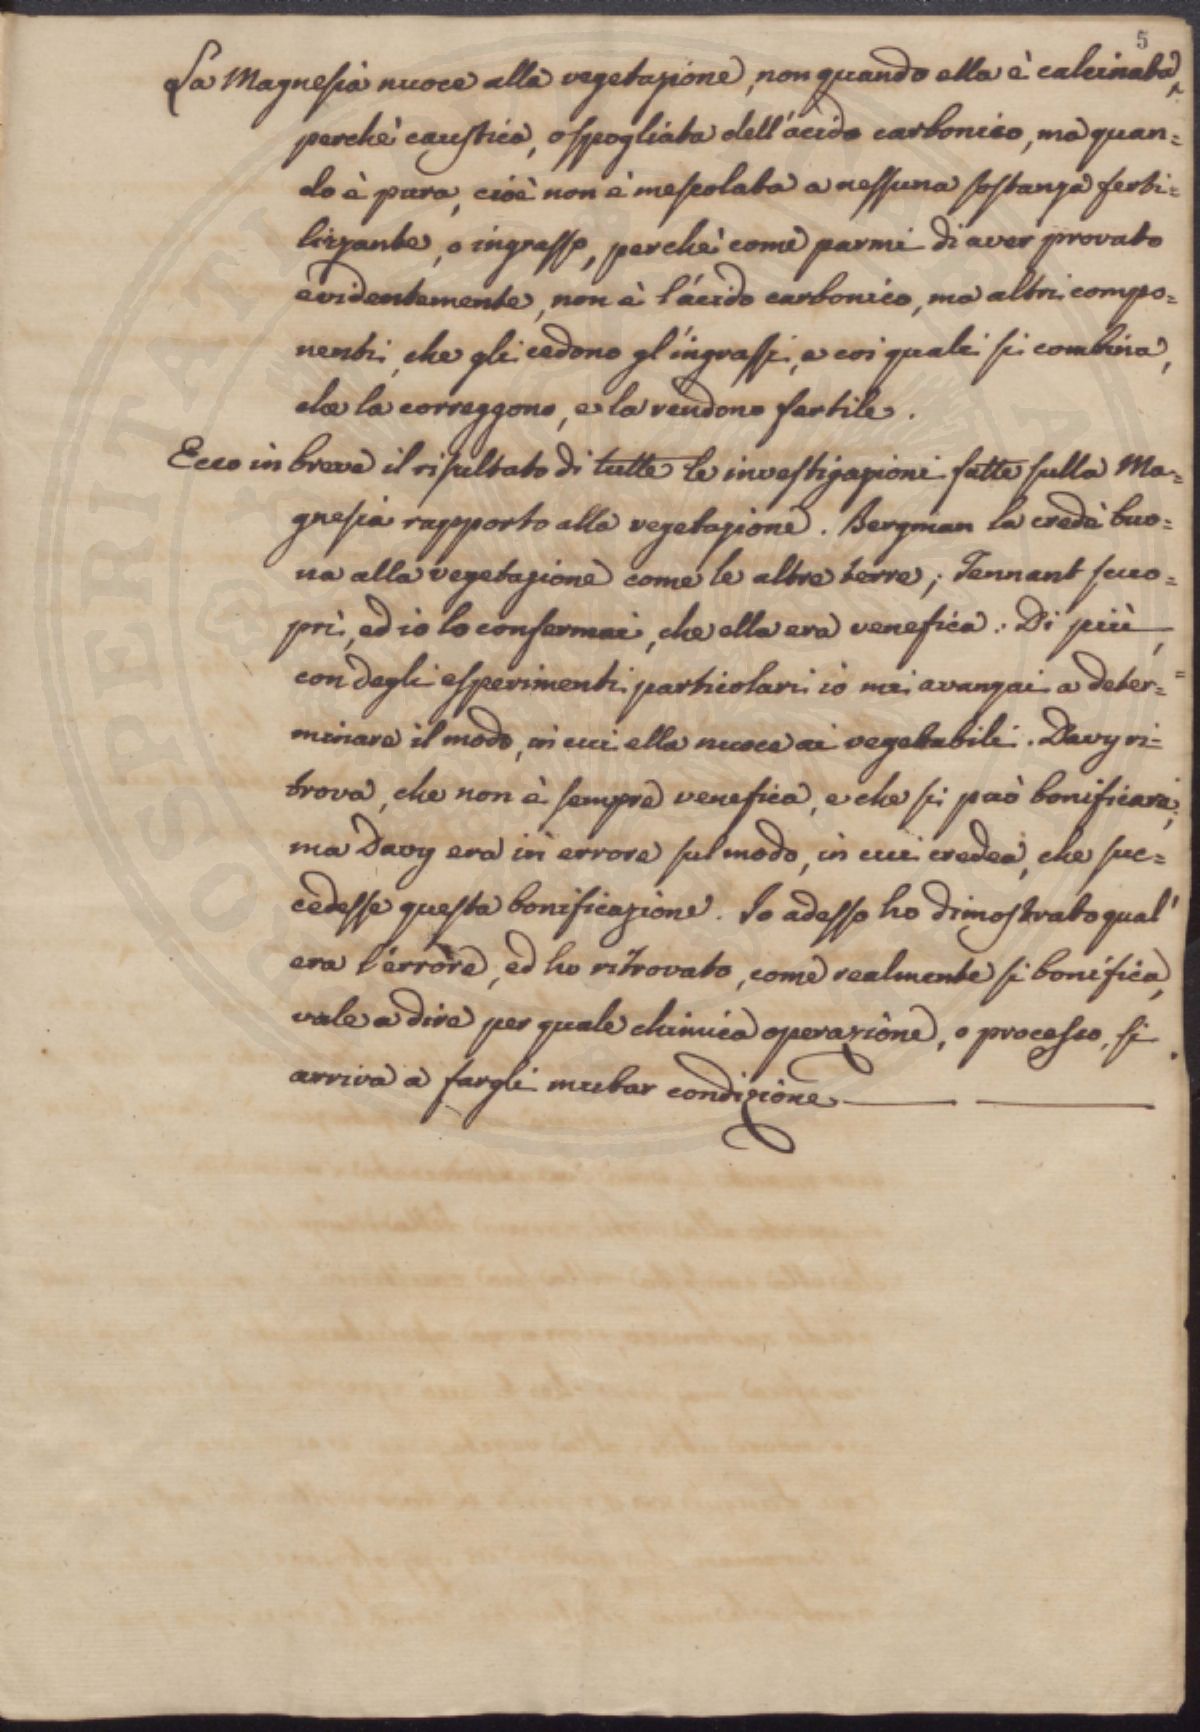 5
La Magnesia nuoce alla vegetazione, non quando ella è calcinata,
perchè caustica, o spogliata dell'acido carbonico, ma quan=
do è pura, cioè non è mescolata a nessuna sostanza ferti=
lizzante, o ingrasso, perchè come parmi di aver provato
evidentemente, non è l'acido carbonico, ma altri compo=
nenti, che gli cedono gl'ingrassi, e coi quali si combina,
che la correggono, e la rendono fertile.
Ecco in breve il risultato di tutte le investigazioni fatte sulla Ma=
gnesia rapporto alla vegetazione. Bergman la crede buo=
na alla vegetazione come le altre terre; Tennant scuo=
prì, ed io lo confermai, che ella era venefica: Di più,
con degli esperimenti particolari io mi avanzai a deter=
minare il modo, in cui ella nuoce ai vegetabili. Davy ri=
trova, che non è sempre venefica, e che si può bonificare;
ma Davy era in errore sul modo, in cui credea, che suc=
cedesse questa bonificazione. Io adesso ho dimostrato qual'
era l'errore, ed ho ritrovato, come realmente si bonifica,
vale a dire per quale chimica operazione, o processo, si
arriva a fargli mutar condizione
SPERITATI